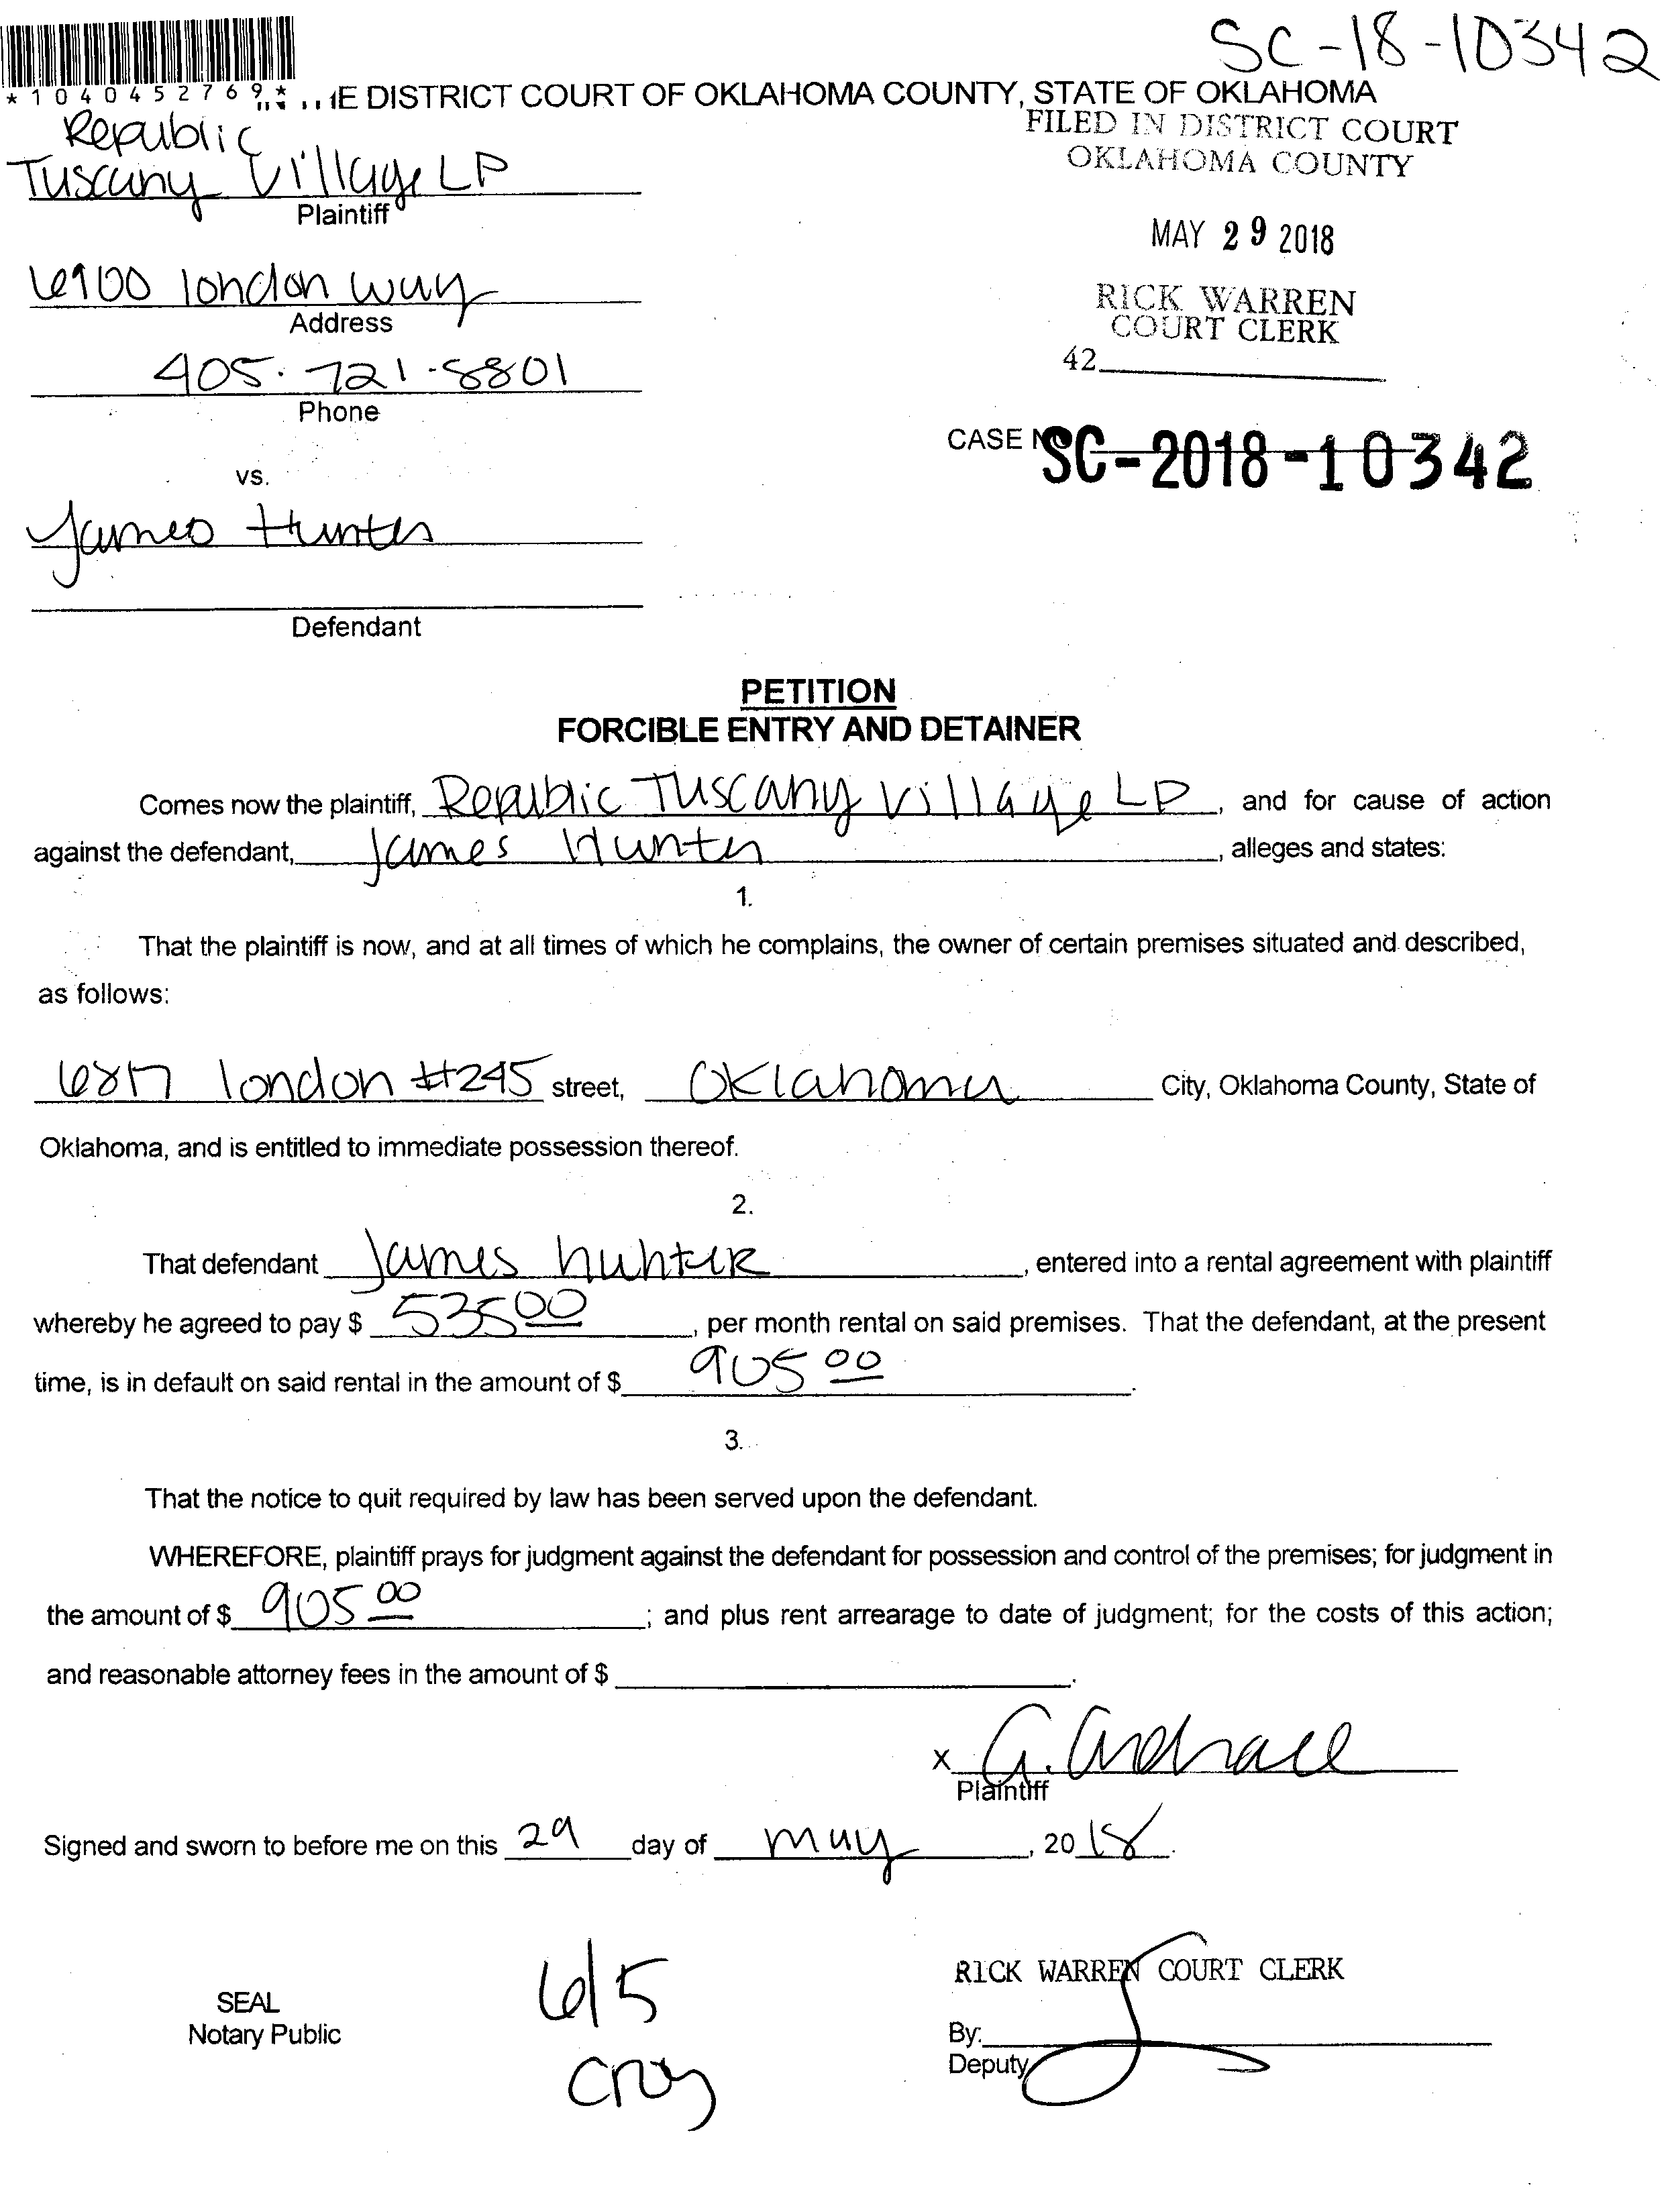 SC-18-10342
*1040452769*
IE DISTRICT COURT OF OKLAHOMA COUNTY, STATE OF OKLAHOMA
FILED IN DISTRICT COURT
OKLAHOMA COUNTY
Republic
Tuscany Village LP
Plaintiff
MAY 29 2018
6900 london way
Address
RICK WARREN
COURT CLERK
405.721-8801
Phone
42
CASE NO SC-2018-10342
vs.
James Hunter
Defendant
PETITION
FORCIBLE ENTRY AND DETAINER
Comes now the plaintiff, Republic Tuscany Village LP, and for cause of action
against the defendant, James Hunter, alleges and states:
1.
That the plaintiff is now, and at all times of which he complains, the owner of certain premises situated and described,
as follows:
6817 london #245 street, Oklahoma City, Oklahoma County, State of
Oklahoma, and is entitled to immediate possession thereof.
2.
That defendant James hunter, entered into a rental agreement with plaintiff
whereby he agreed to pay $ 535 00, per month rental on said premises. That the defendant, at the present
time, is in default on said rental in the amount of $ 905 00.
3.
That the notice to quit required by law has been served upon the defendant.
WHEREFORE, plaintiff prays for judgment against the defendant for possession and control of the premises; for judgment in
the amount of $ 905 00; and plus rent arrearage to date of judgment; for the costs of this action;
and reasonable attorney fees in the amount of $ .
x
Plaintiff
Signed and sworn to before me on this 29 day of may, 20 18.
6/5
RICK WARREN COURT CLERK
SEAL
Notary Public
By:
Deputy